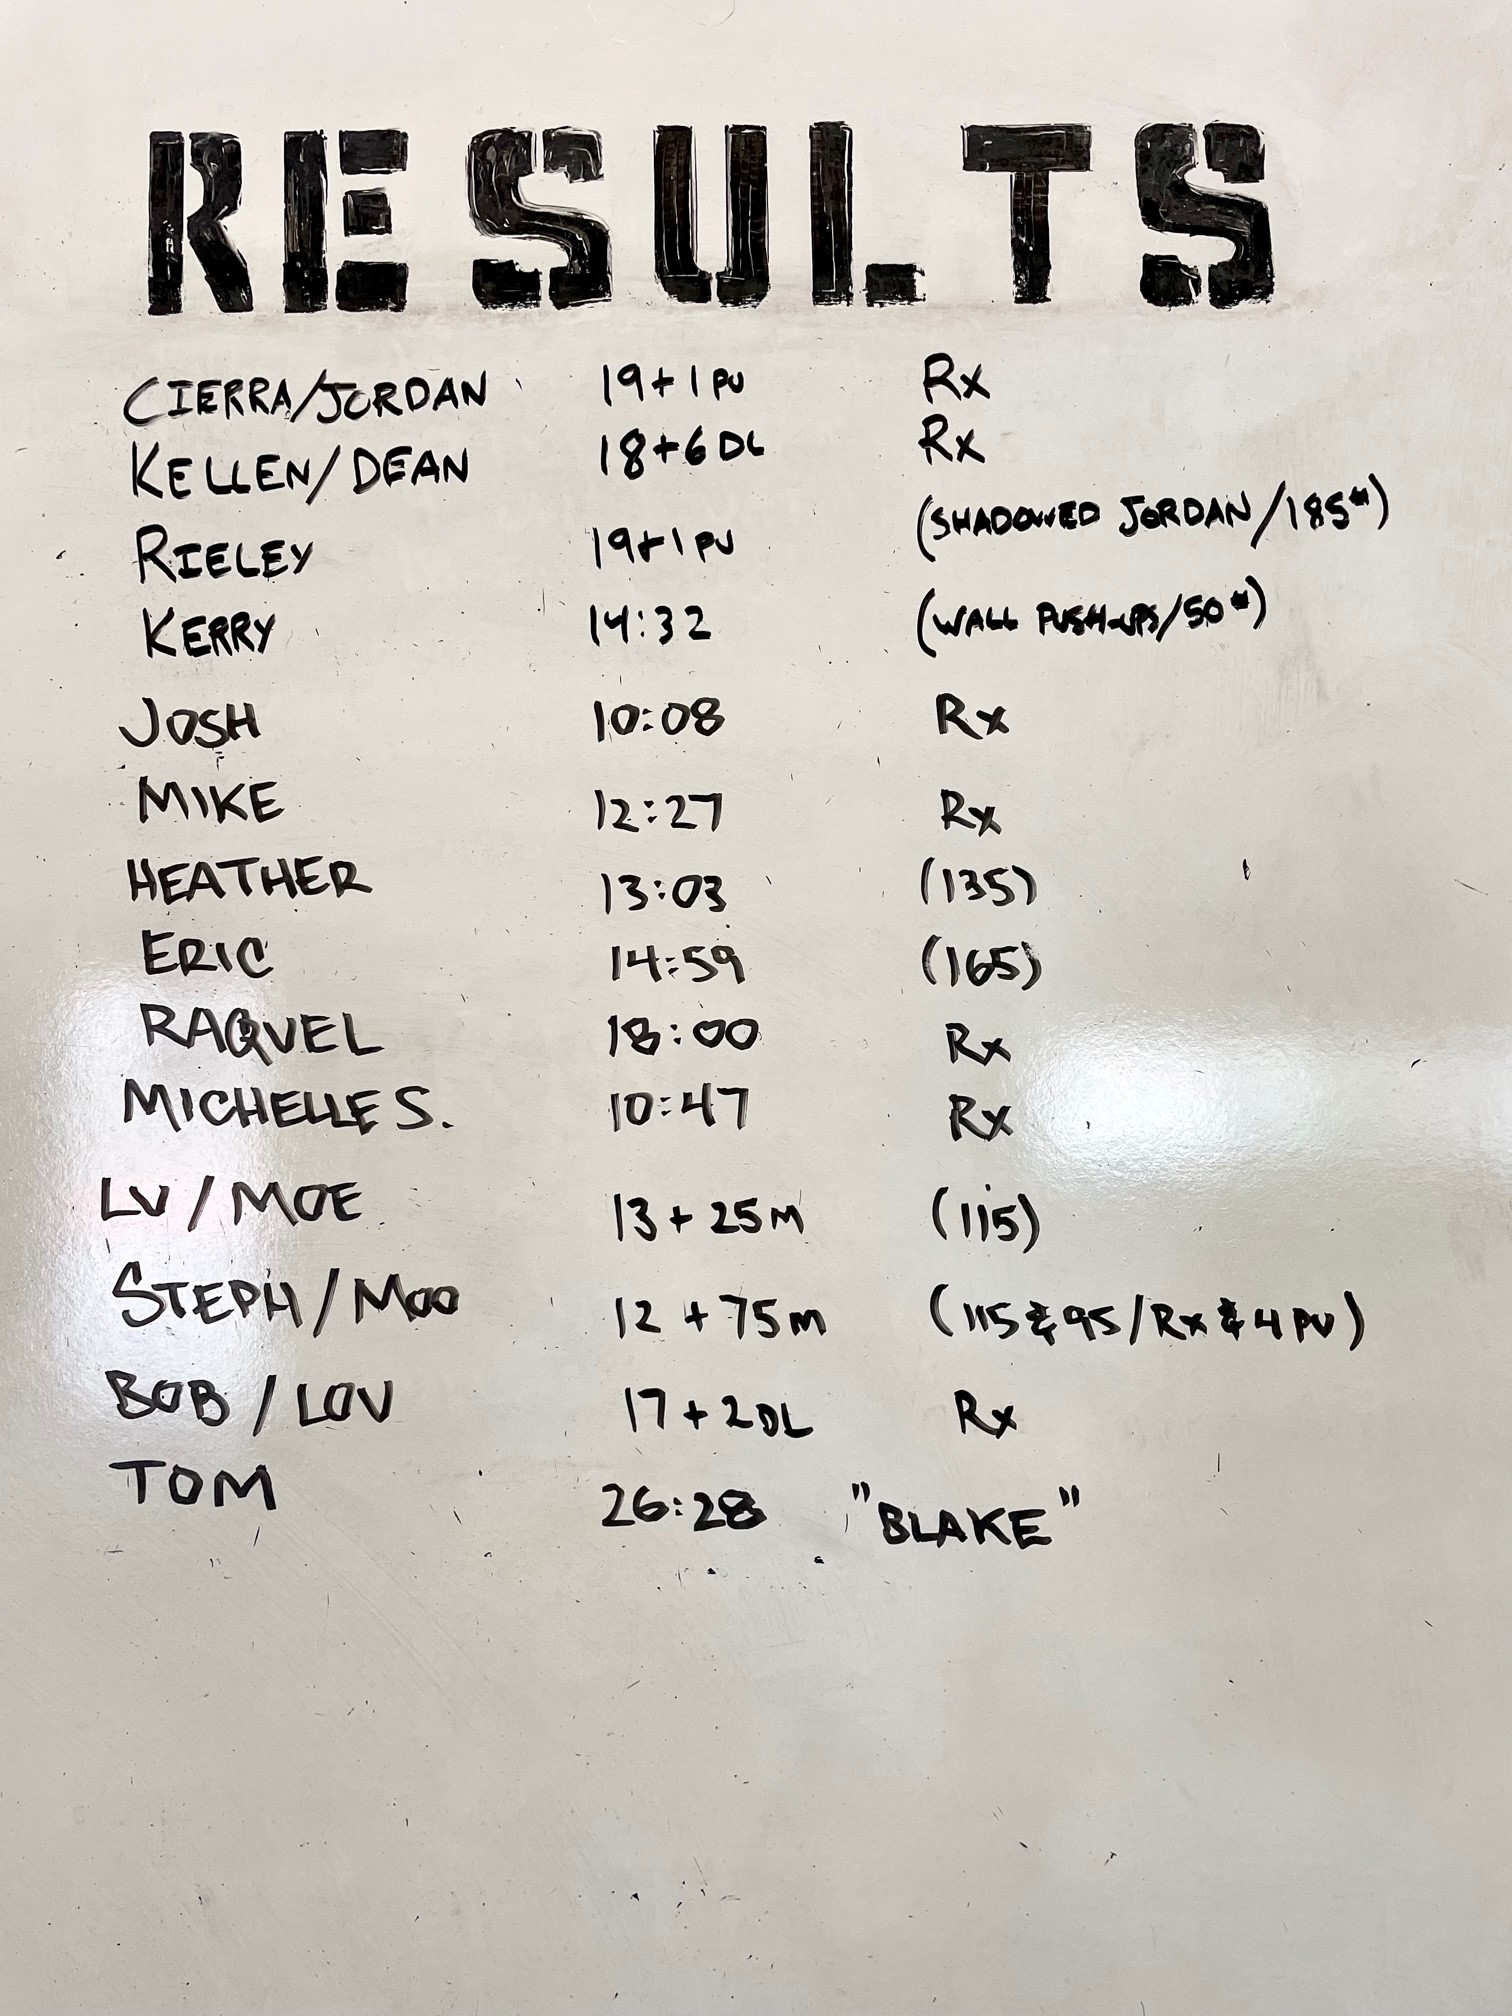 RESULTS
CIERRA/JORDAN 19+1 PU Rx
KELLEN/DEAN 18+6 DL Rx
RIELEY 19+1 PU (SHADOWED JORDAN/185#)
KERRY 14:32 (WALL PUSH-UPS/50#)
JOSH 10:08 Rx
MIKE 12:27 Rx
HEATHER 13:03 (135)
ERIC 14:59 (165)
RAQUEL 18:00 Rx
MICHELLE S. 10:47 Rx
LU/MOE 13+25M (115)
STEPH/MOO 12+75M (115 & 95/Rx & 4 PU)
BOB/LOU 17+2DL Rx
TOM 26:28 "BLAKE"